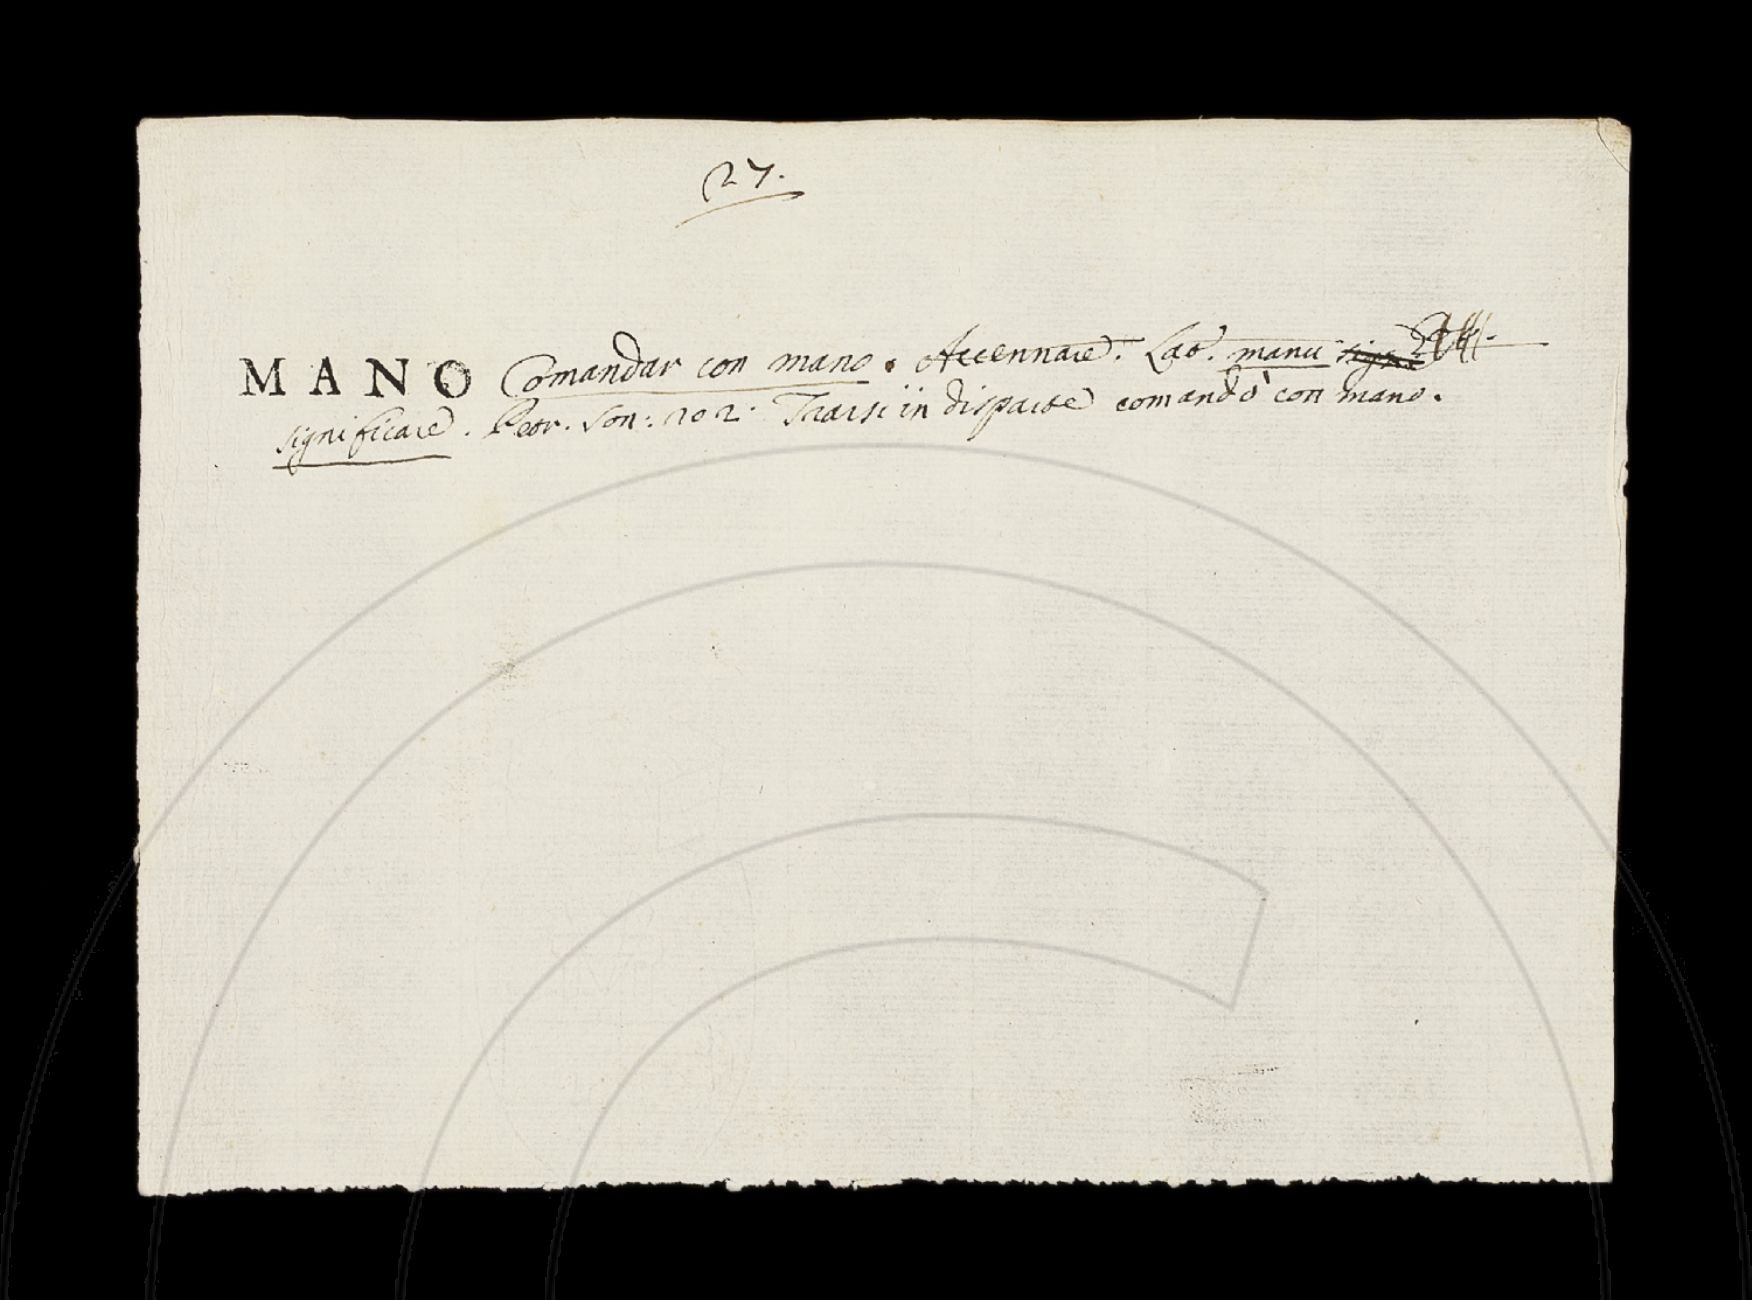 27.
MANO Comandar con mano. Accennare. Lat. manu
significare. Petr. Son: 202. Trarsi in disparte comandò con mano.